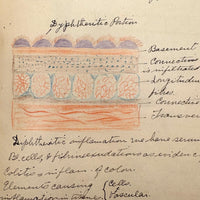 Dyphtheritic Portion
Basement
Connective
is infiltrated
Longitudin
fibres.
Connective
Transver
Diphtheritic inflamation we have serum
Bl. cells, & fibrin exudation as eviden
Colitis is inflam of colon.
Elements causing { Cells.
inflamation in Vascular.